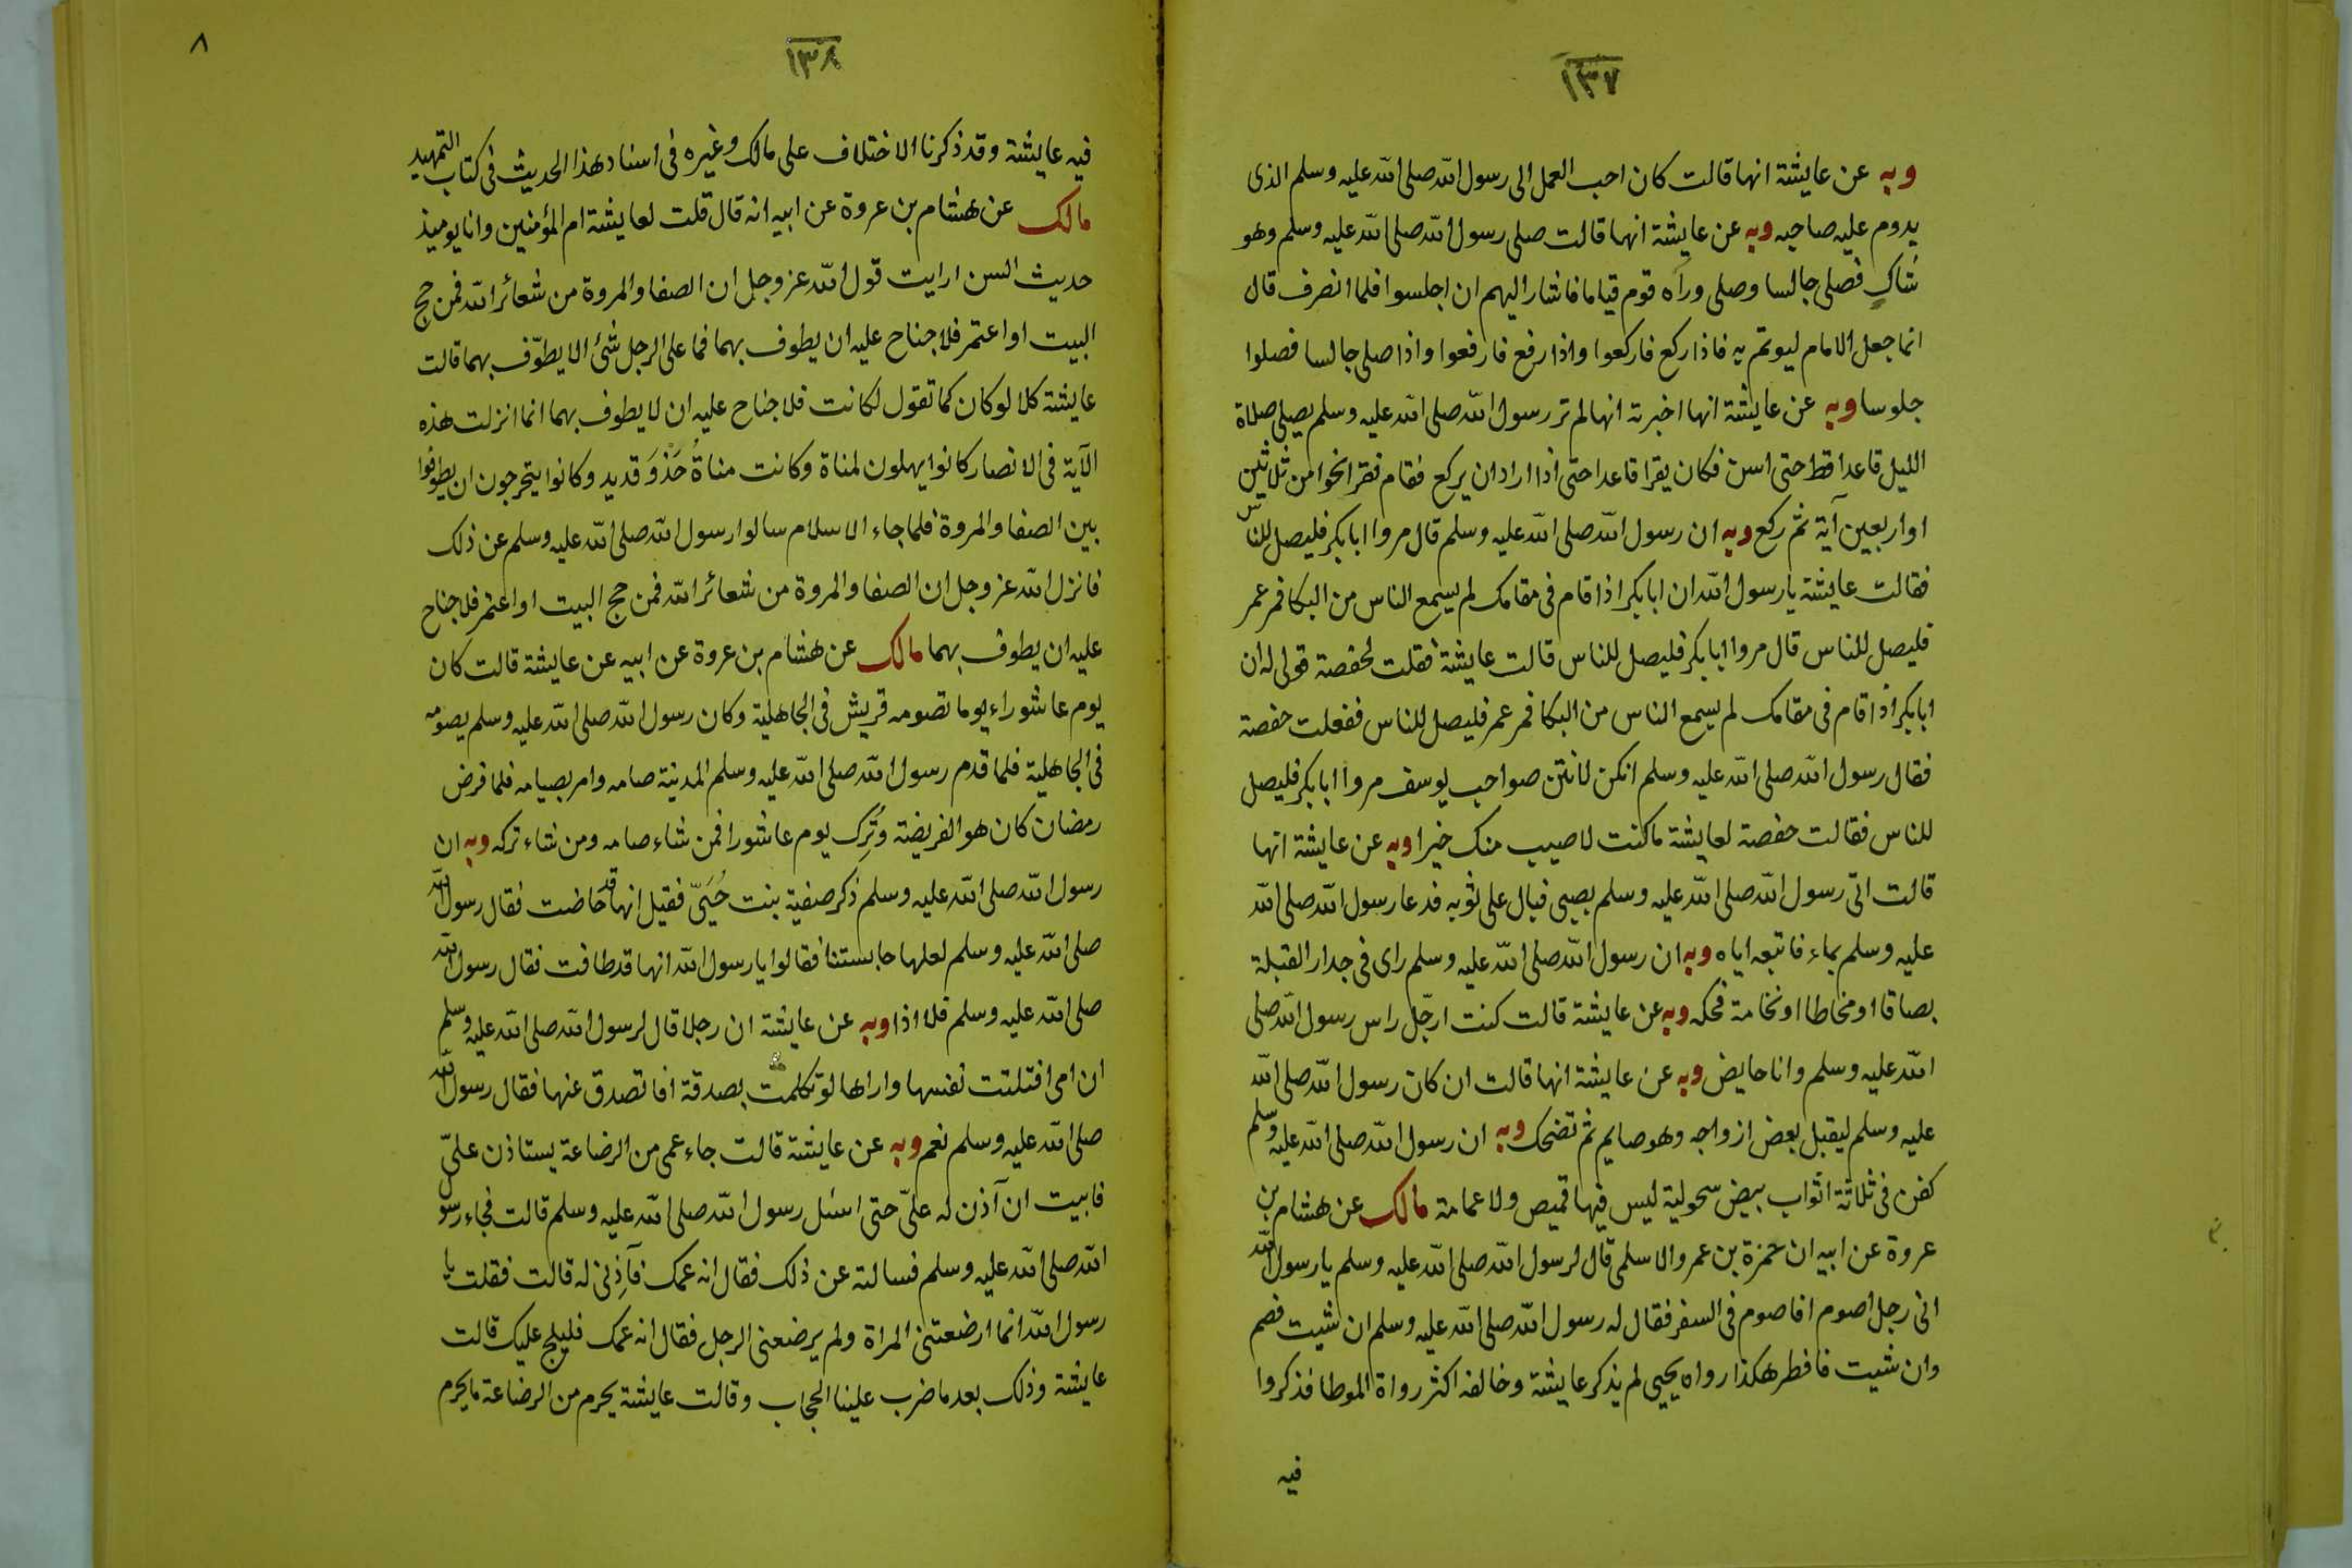 ١٣٧
وبه عن عايشة انها قالت كان احب العمل الى رسول الله صلى الله عليه وسلم الذى
يدوم عليه صاحبه وبه عن عايشة انها قالت صلى رسول الله صلى الله عليه وسلم وهو
شاكٍ فصلى جالسا وصلى ورآه قوم قياما فاشار اليهم ان اجلسوا فلما انصرف قال
انما جعل الامام ليوتم به فاذا ركع فاركعوا واذا رفع فارفعوا واذا صلى جالسا فصلوا
جلوسا وبه عن عايشة انها اخبرته انها لم تر رسول الله صلى الله عليه وسلم يصلى صلاة
الليل قاعدا قط حتى اسن فكان يقرا قاعدا حتى اذا اراد ان يركع فقام فقرا نحوا من ثلاثين
او اربعين آية ثم ركع وبه ان رسول الله صلى الله عليه وسلم قال مروا ابا بكر فليصل للناس
فقالت عايشة يا رسول الله ان ابا بكر اذا قام فى مقامك لم يسمع الناس من البكا فمر عمر
فليصل للناس قال مروا ابا بكر فليصل للناس قالت عايشة فقلت لحفصة قولى له ان
ابا بكر اذا قام فى مقامك لم يسمع الناس من البكا فمر عمر فليصل للناس ففعلت حفصة
فقال رسول الله صلى الله عليه وسلم انكن لانتن صواحب يوسف مروا ابا بكر فليصل
للناس فقالت حفصة لعايشة ما كنت لاصيب منك خيرا وبه عن عايشة انها
قالت اتى رسول الله صلى الله عليه وسلم بصبى فبال على ثوبه فدعا رسول الله صلى الله
عليه وسلم بماء فاتبعه اياه وبه ان رسول الله صلى الله عليه وسلم راى فى جدار القبلة
بصاقا او مخاطا او نخامة فحكه وبه عن عايشة قالت كنت ارجّل راس رسول الله صلى
الله عليه وسلم وانا حايض وبه عن عايشة انها قالت ان كان رسول الله صلى الله
عليه وسلم ليقبل بعض ازواجه وهو صايم ثم تضحك وبه ان رسول الله صلى الله عليه وسلم
كفن فى ثلاثة اثواب بيض سحولية ليس فيها قميص ولا عمامة مالك عن هشام بن
عروة عن ابيه ان حمزة بن عمرو الاسلمى قال لرسول الله صلى الله عليه وسلم يا رسول الله
انى رجل اصوم افاصوم فى السفر فقال له رسول الله صلى الله عليه وسلم ان شيت فصم
وان شيت فافطر هكذا رواه يحيى لم يذكر عايشة وخالفه اكثر رواة الموطا فذكروا
فيه
١٣٨
٨
فيه عايشة وقد ذكرنا الاختلاف على مالك وغيره فى اسناد هذا الحديث فى كتاب التمهيد
مالك عن هشام بن عروة عن ابيه انه قال قلت لعايشة ام المؤمنين وانا يوميذ
حديث السن ارايت قول الله عز وجل ان الصفا والمروة من شعائر الله فمن حج
البيت او اعتمر فلا جناح عليه ان يطوف بهما فما على الرجل شئ الا يطوّف بهما قالت
عايشة كلا لو كان كما تقول لكانت فلا جناح عليه ان لا يطوف بهما انما انزلت هذه
الآية فى الانصار كانوا يهلون لمناة وكانت مناةُ حَذْوَ قديد وكانوا يتحرجون ان يطوفوا
بين الصفا والمروة فلما جاء الاسلام سالوا رسول الله صلى الله عليه وسلم عن ذلك
فانزل الله عز وجل ان الصفا والمروة من شعائر الله فمن حج البيت او اعتمر فلا جناح
عليه ان يطوف بهما مالك عن هشام بن عروة عن ابيه عن عايشة قالت كان
يوم عاشوراء يوما تصومه قريش فى الجاهلية وكان رسول الله صلى الله عليه وسلم يصومه
فى الجاهلية فلما قدم رسول الله صلى الله عليه وسلم المدينة صامه وامر بصيامه فلما فرض
رمضان كان هو الفريضة وتُرِك يوم عاشورا فمن شاء صامه ومن شاء تركه وبه ان
رسول الله صلى الله عليه وسلم ذكر صفية بنت حُيَىّ فقيل انها قد حاضت فقال رسول الله
صلى الله عليه وسلم لعلها حابستنا فقالوا يا رسول الله انها قد طافت فقال رسول الله
صلى الله عليه وسلم فلا اذا وبه عن عايشة ان رجلا قال لرسول الله صلى الله عليه وسلم
ان امى افتلتت نفسها واراها لو تكلمت بصدقة افاتصدق عنها فقال رسول الله
صلى الله عليه وسلم نعم وبه عن عايشة قالت جاء عمى من الرضاعة يستاذن علىّ
فابيت ان آذن له علىّ حتى اسئل رسول الله صلى الله عليه وسلم قالت فجاء رسول
الله صلى الله عليه وسلم فسالته عن ذلك فقال انه عمك فآذِنى له قالت فقلت يا
رسول الله انما ارضعتنى المراة ولم يرضعنى الرجل فقال انه عمك فليلج عليك قالت
عايشة وذلك بعد ما ضرب علينا الحجاب وقالت عايشة يحرم من الرضاعة ما يحرم